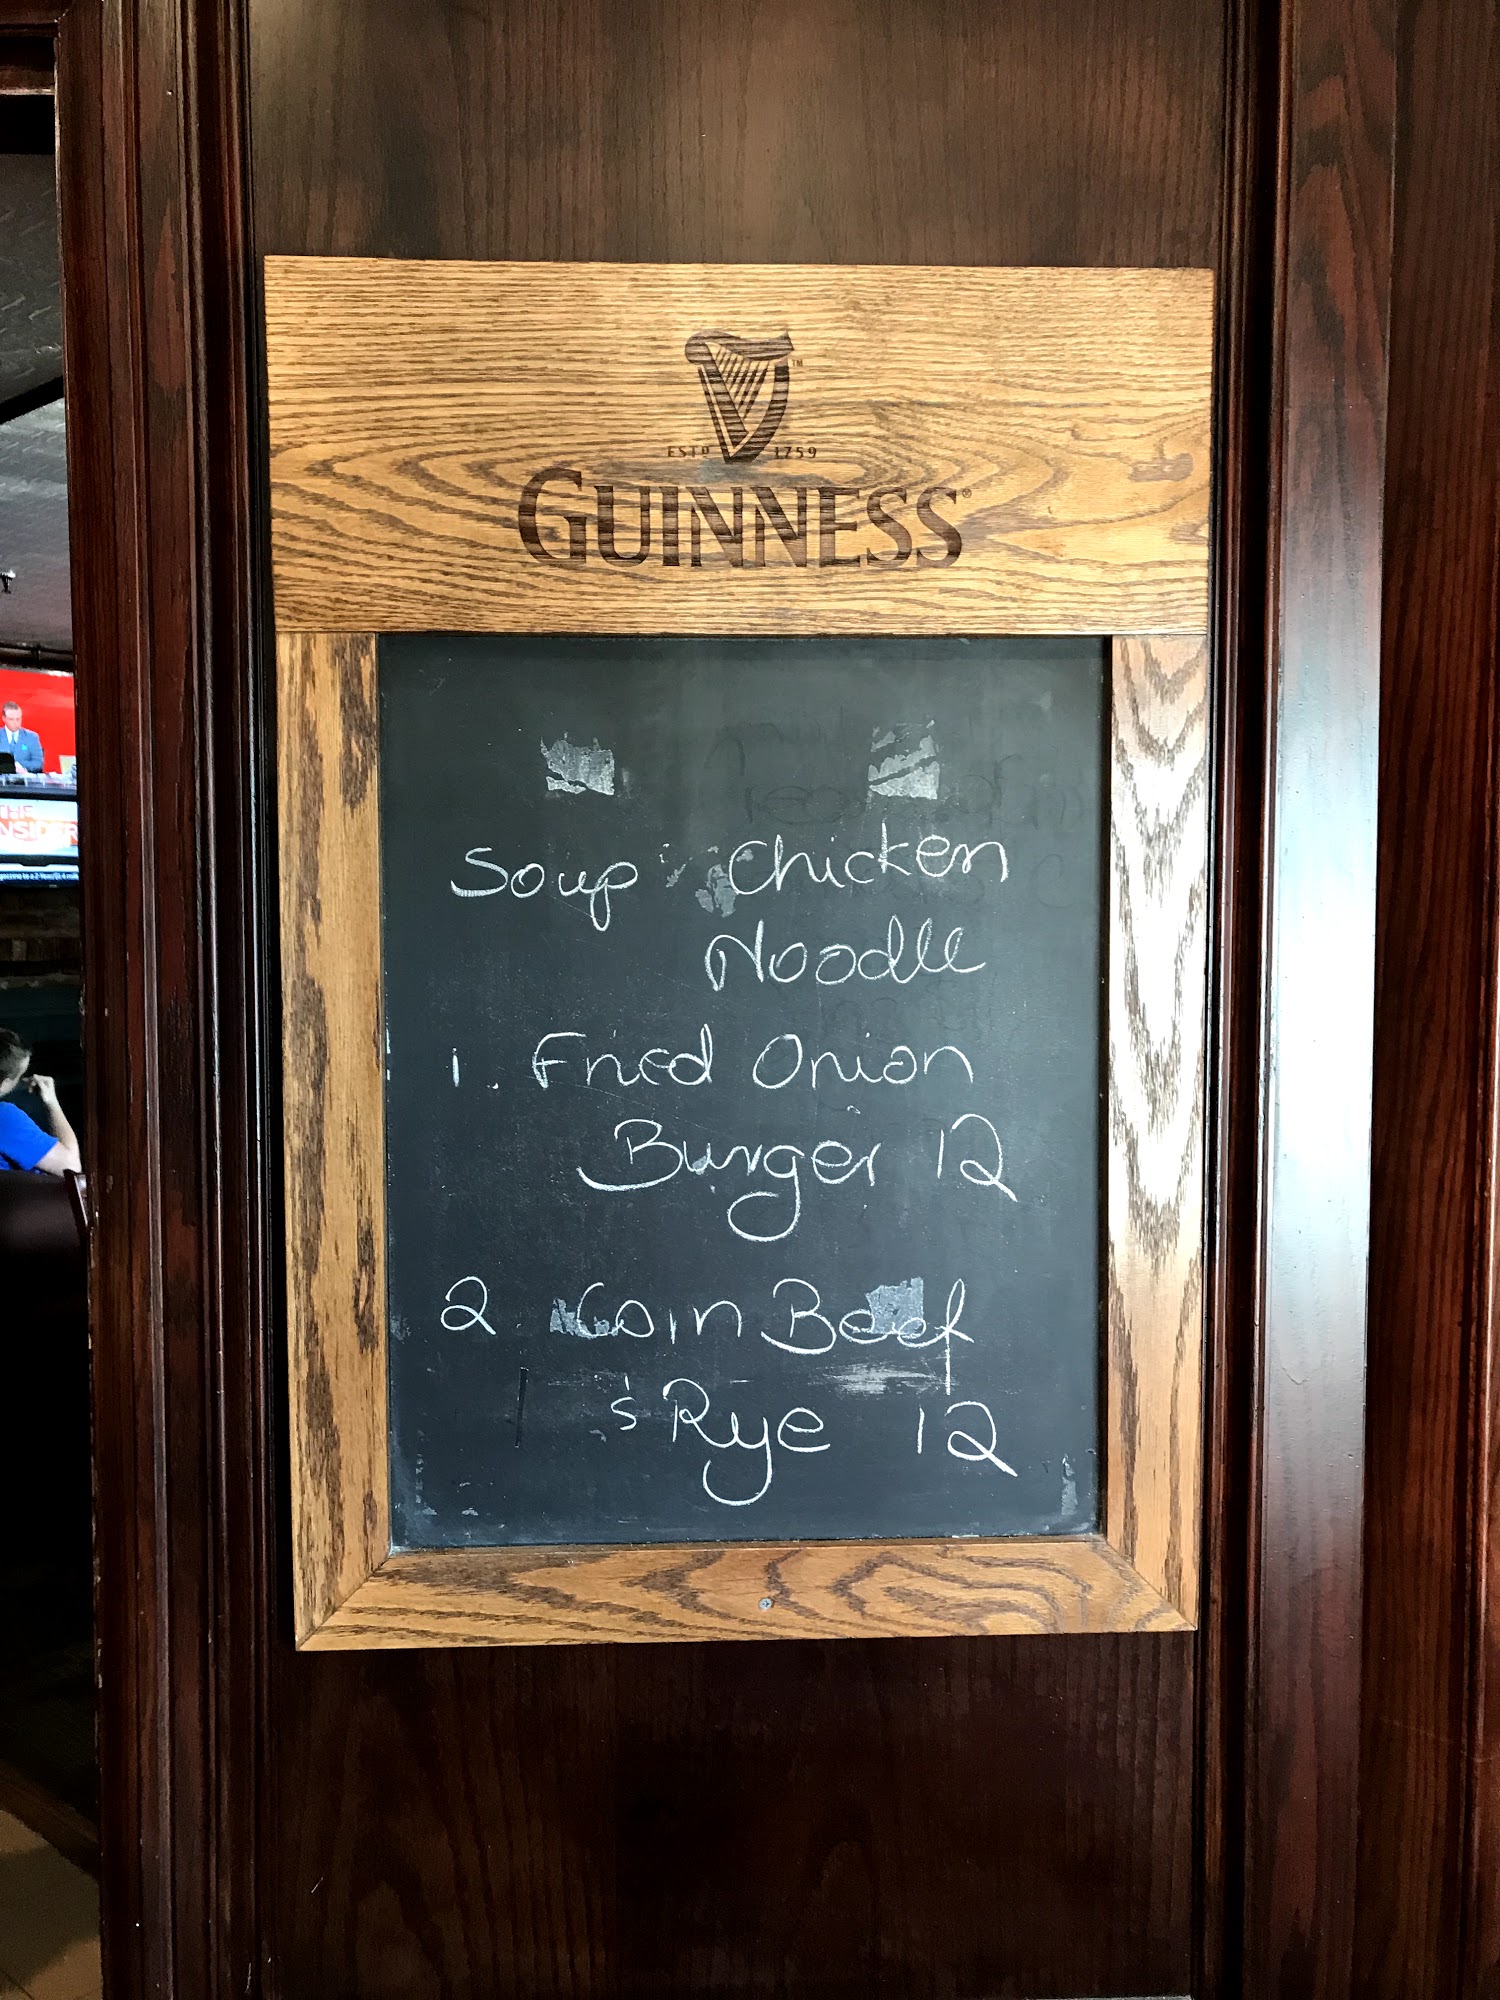 ESTD 1759
GUINNESS
Soup Chicken
Noodle
1. Fried Onion
Burger 12
2. Coin Beef
's Rye 12
THE
INSIDER